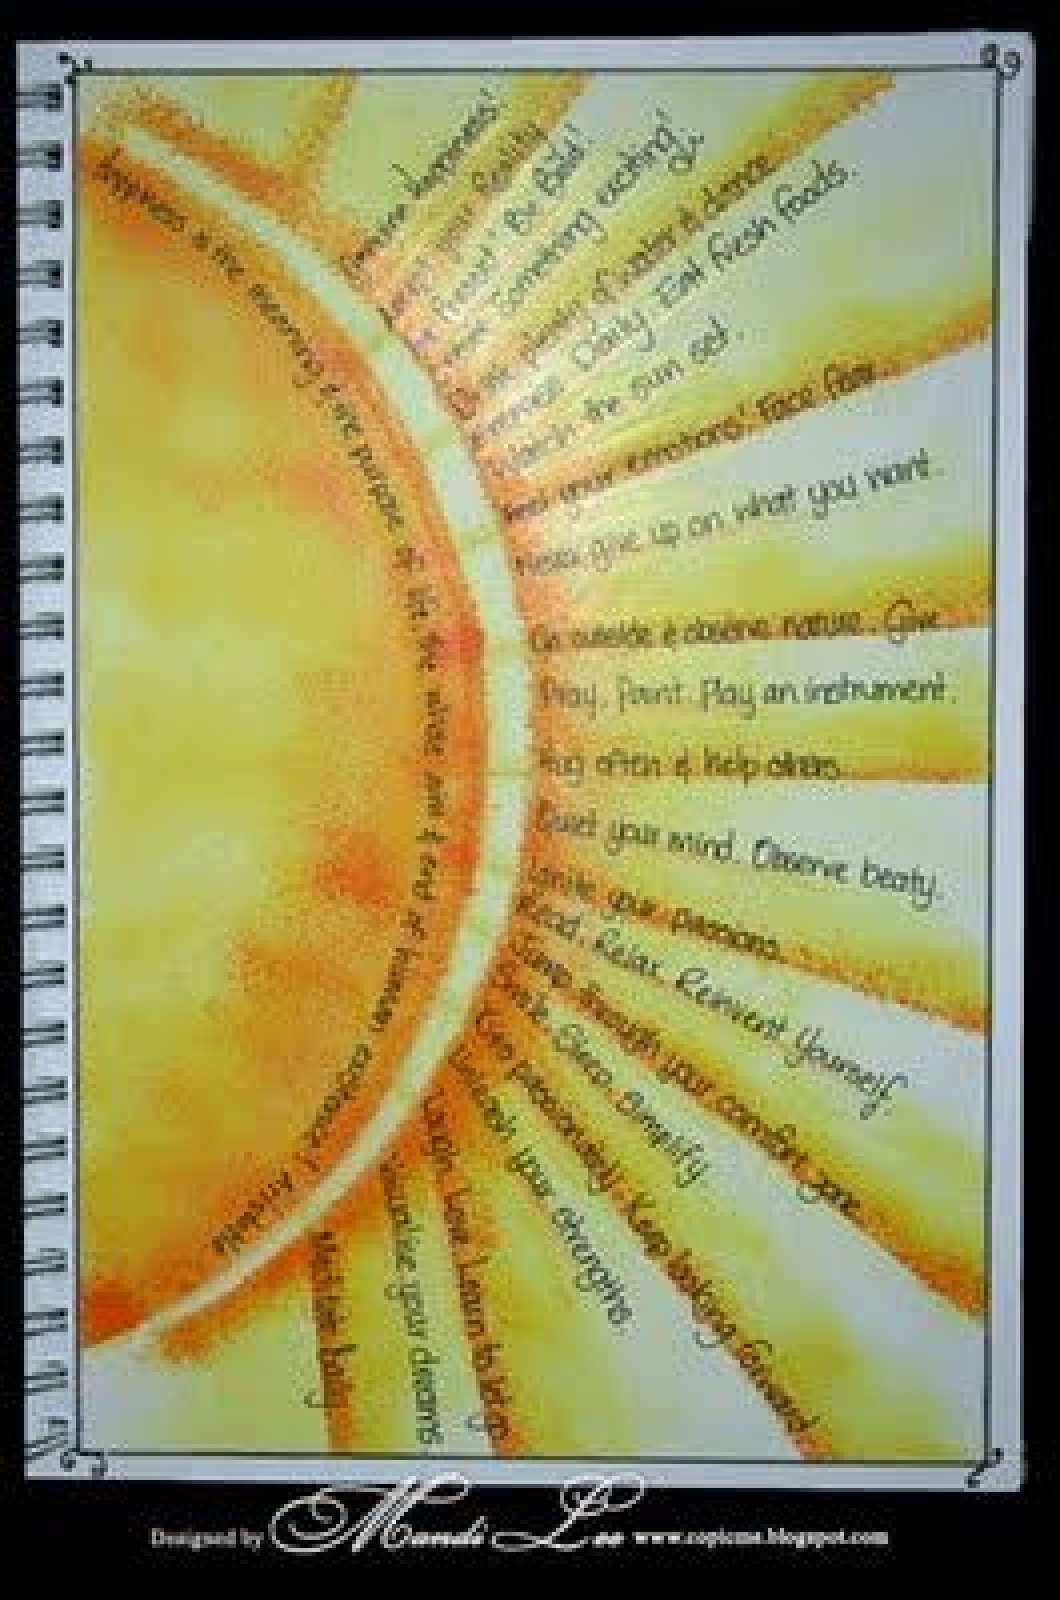 Happiness is the meaning & the purpose of life, the whole aim & end of human existence! Aristotle
Choose Happiness!
your Reality
Be Bold!
Something exciting!
Drink plenty of water & dance
Exercise Daily. Eat fresh foods.
Watch the sun set.
Feel your emotions! Face fear.
Never give up on what you want.
Go outside & observe nature. Give.
Pray. Paint. Play an instrument.
Hug often & help others.
Quiet your mind. Observe beaty.
Ignite your passions.
Read. Relax. Reinvent Yourself.
Jump through your comfort zone.
Smile. Sleep. Simplify
Live passionately. Keep looking forward
Unleash your strengths.
Laugh. Love. Learn to let go
Visualise your dreams
Meditate daily
Designed by Mandi Lee www.copicme.blogspot.com